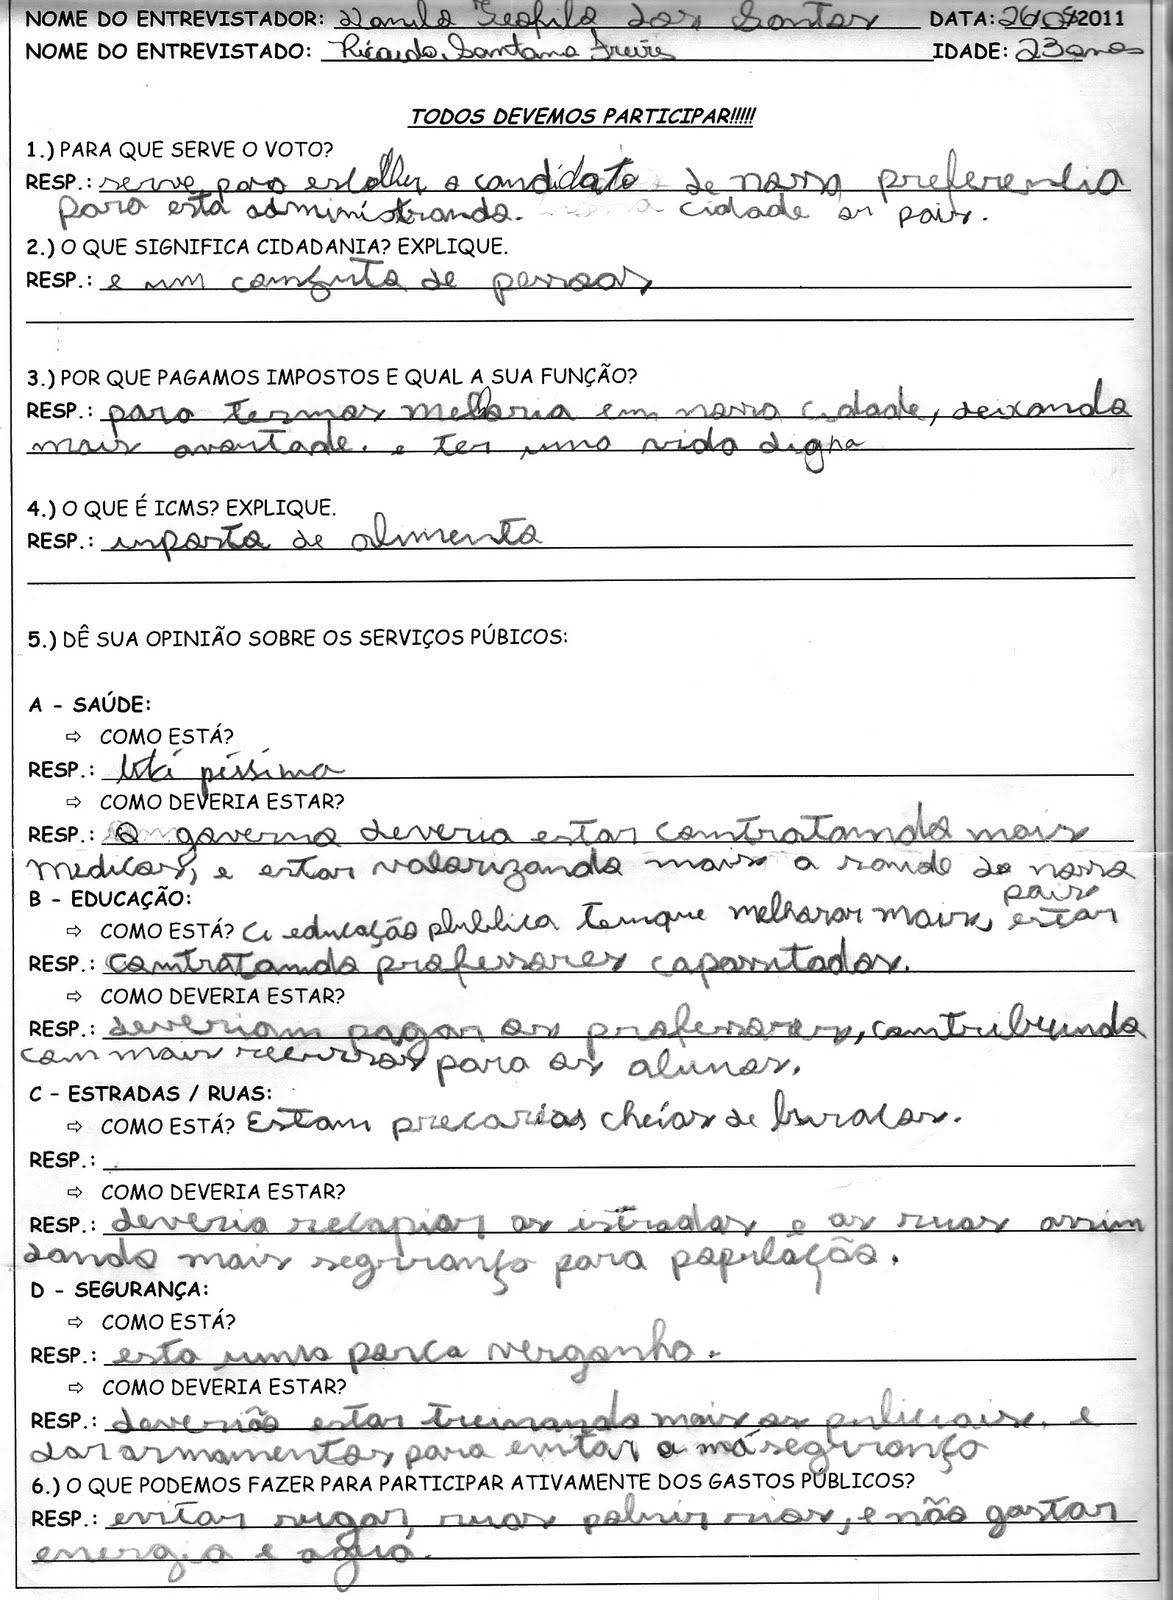 NOME DO ENTREVISTADOR: Danilo Teofilo dos Santos DATA: 26/05/2011
NOME DO ENTREVISTADO: Ricardo Santana Freire IDADE: 23 anos
TODOS DEVEMOS PARTICIPAR!!!!!
1.) PARA QUE SERVE O VOTO?
RESP.: serve para escolher o candidato de nossa preferencia
para está administrando. a cidade ou pais.
2.) O QUE SIGNIFICA CIDADANIA? EXPLIQUE.
RESP.: e um conjuto de pessoas
3.) POR QUE PAGAMOS IMPOSTOS E QUAL A SUA FUNÇÃO?
RESP.: para termos melhoria em nossa cidade, deixando
mais avontade. e ter uma vida digna
4.) O QUE É ICMS? EXPLIQUE.
RESP.: imposto de alimento
5.) DÊ SUA OPINIÃO SOBRE OS SERVIÇOS PÚBICOS:
A - SAÚDE:
⇨ COMO ESTÁ?
RESP.: Está péssima
⇨ COMO DEVERIA ESTAR?
RESP.: O governo deveria estar contratando mais
medicos, e estar valorizando mais a saude do nosso
pais
B - EDUCAÇÃO:
⇨ COMO ESTÁ? A educação publica temque melhorar mais, estar
RESP.: contratando professores capasitados.
⇨ COMO DEVERIA ESTAR?
RESP.: deveriam pagar os professores, contribuindo
com mais recursos para os alunos.
C - ESTRADAS / RUAS:
⇨ COMO ESTÁ? Estam precarias cheias de buracos.
RESP.:
⇨ COMO DEVERIA ESTAR?
RESP.: deveria recapiar as istradas e as ruas assim
dando mais segurança para população.
D - SEGURANÇA:
⇨ COMO ESTÁ?
RESP.: esta uma porca vergonha.
⇨ COMO DEVERIA ESTAR?
RESP.: deverião estar treinando mais os policiais. e
dar armamentos para evitar a má segurança
6.) O QUE PODEMOS FAZER PARA PARTICIPAR ATIVAMENTE DOS GASTOS PÚBLICOS?
RESP.: evitar sugar ruas poluir rios, e não gastar
energia e agua.